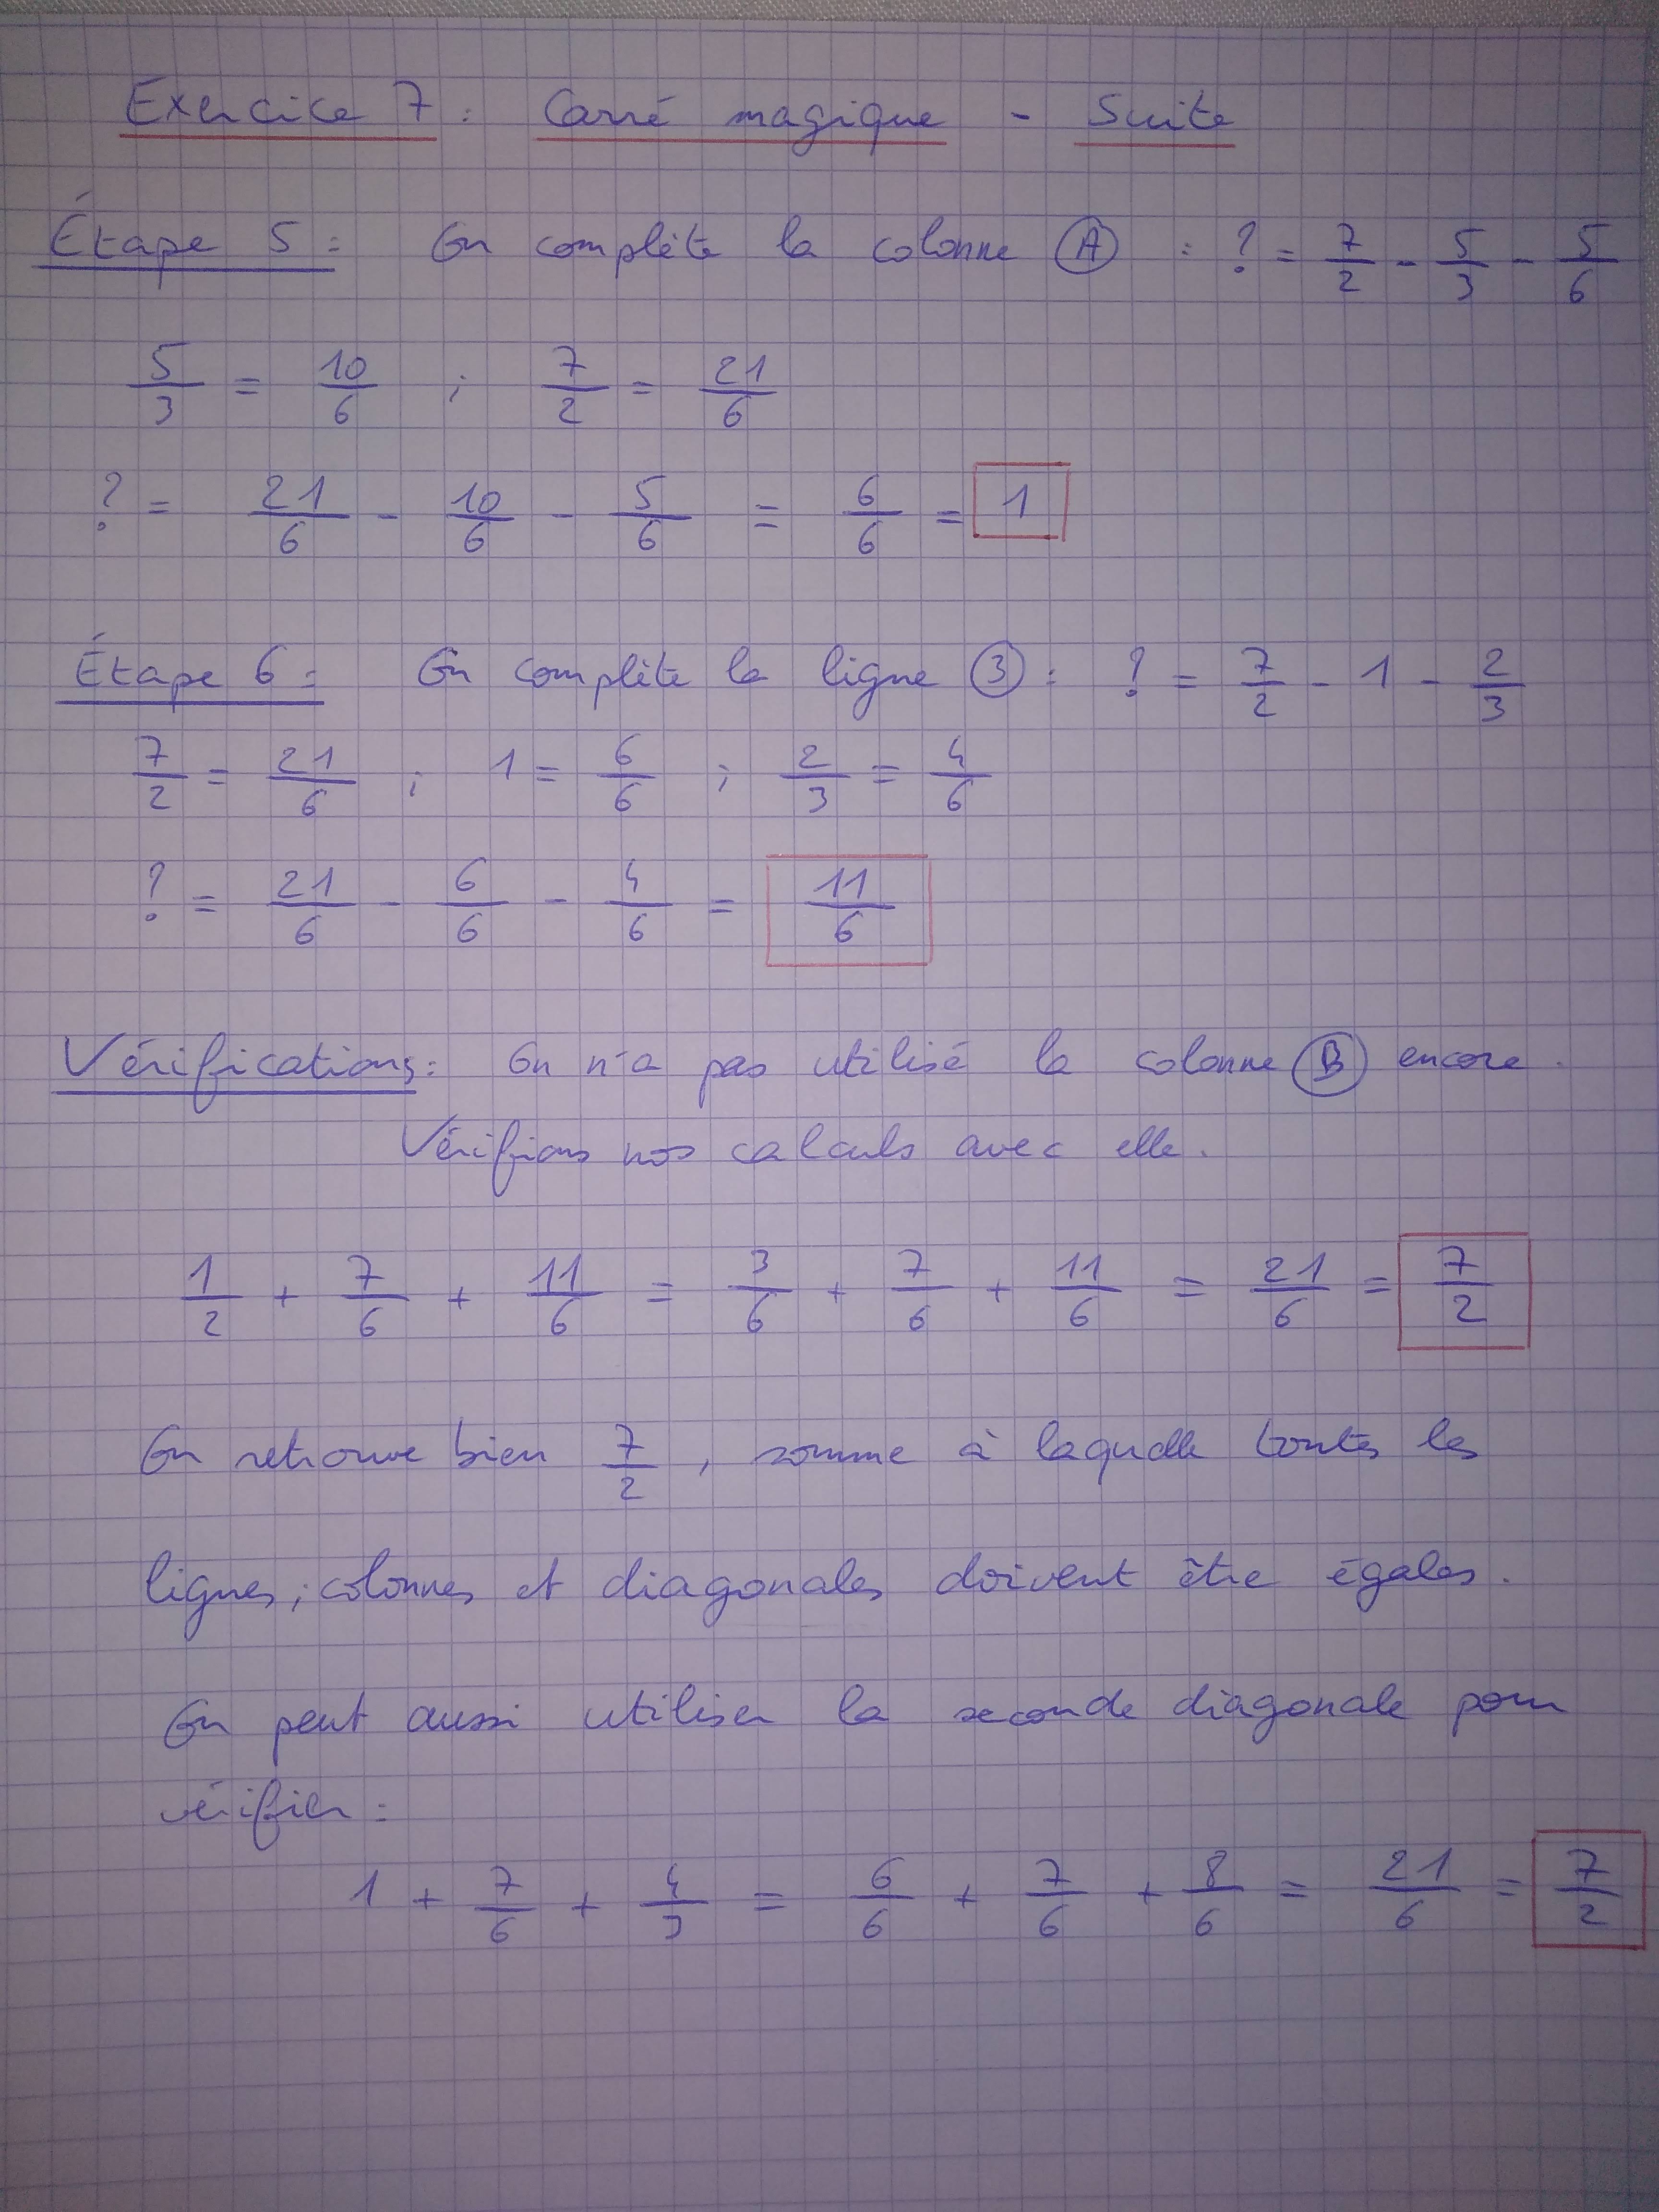 Exercice 7 : Carré magique - Suite
Étape 5 : On complète la colonne (A) : ? = 7/2 - 5/3 - 5/6
5/3 = 10/6 ; 7/2 = 21/6
? = 21/6 - 10/6 - 5/6 = 6/6 = 1
Étape 6 : On complète la ligne (3) : ? = 7/2 - 1 - 2/3
7/2 = 21/6 ; 1 = 6/6 ; 2/3 = 4/6
? = 21/6 - 6/6 - 4/6 = 11/6
Vérifications : On n'a pas utilisé la colonne (B) encore.
Vérifions nos calculs avec elle.
1/2 + 7/6 + 11/6 = 3/6 + 7/6 + 11/6 = 21/6 = 7/2
On retrouve bien 7/2, somme à laquelle toutes les
lignes, colonnes et diagonales doivent être égales.
On peut aussi utiliser la seconde diagonale pour
vérifier :
1 + 7/6 + 4/3 = 6/6 + 7/6 + 8/6 = 21/6 = 7/2